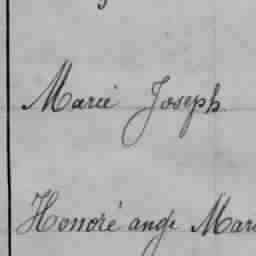 Marie Joseph
Honoré ange Mari